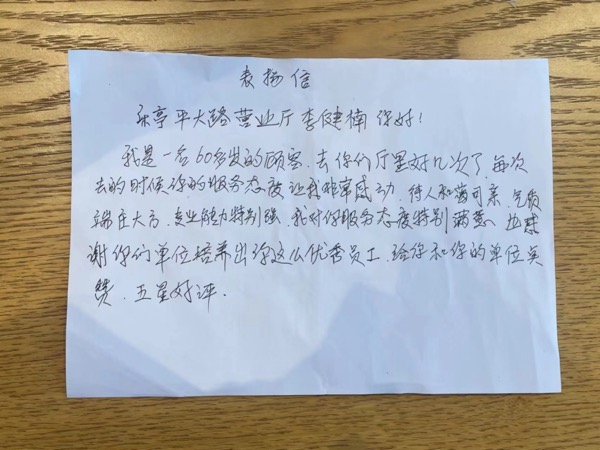 表扬信
乐亭平大路营业厅李健楠 你好!
我是一名60多岁的顾客.去你们厅里好几次了,每次
去的时候你的服务态度让我非常感动.待人和蔼可亲,气质
端庄大方.专业能力特别强.我对你服务态度特别满意、也感
谢你们单位培养出你这么优秀员工.给你和你的单位点
赞.五星好评.